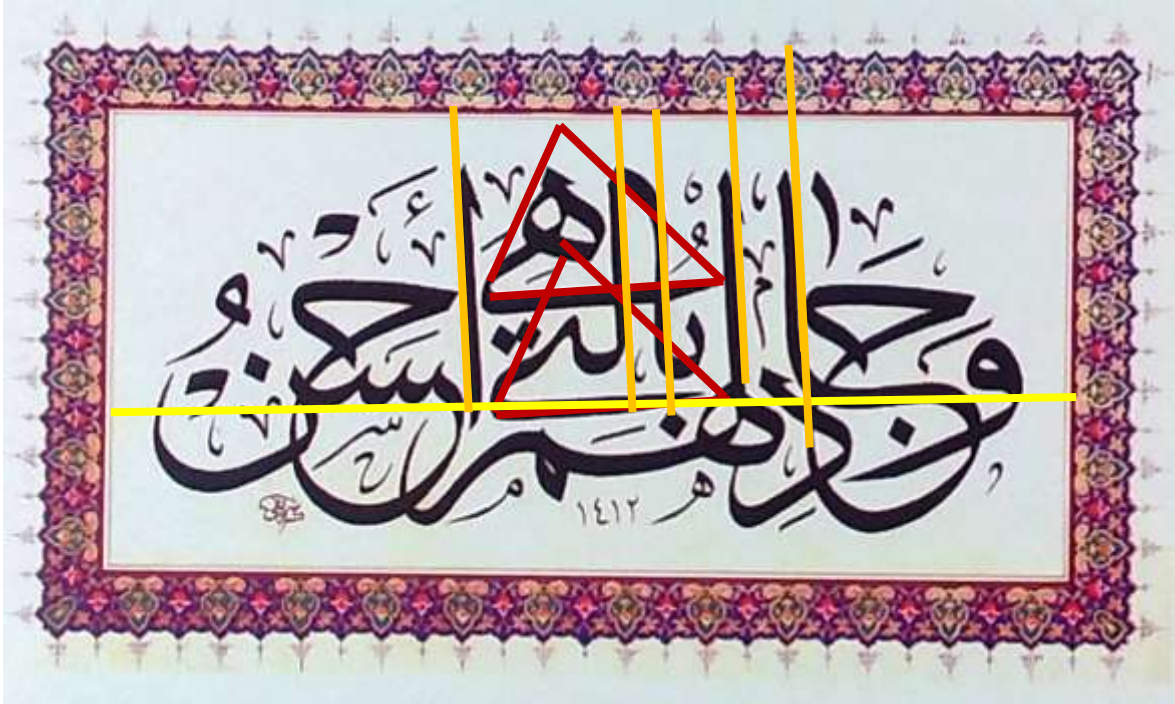 وجادلهم بالتي هي أحسن
١٤١٢